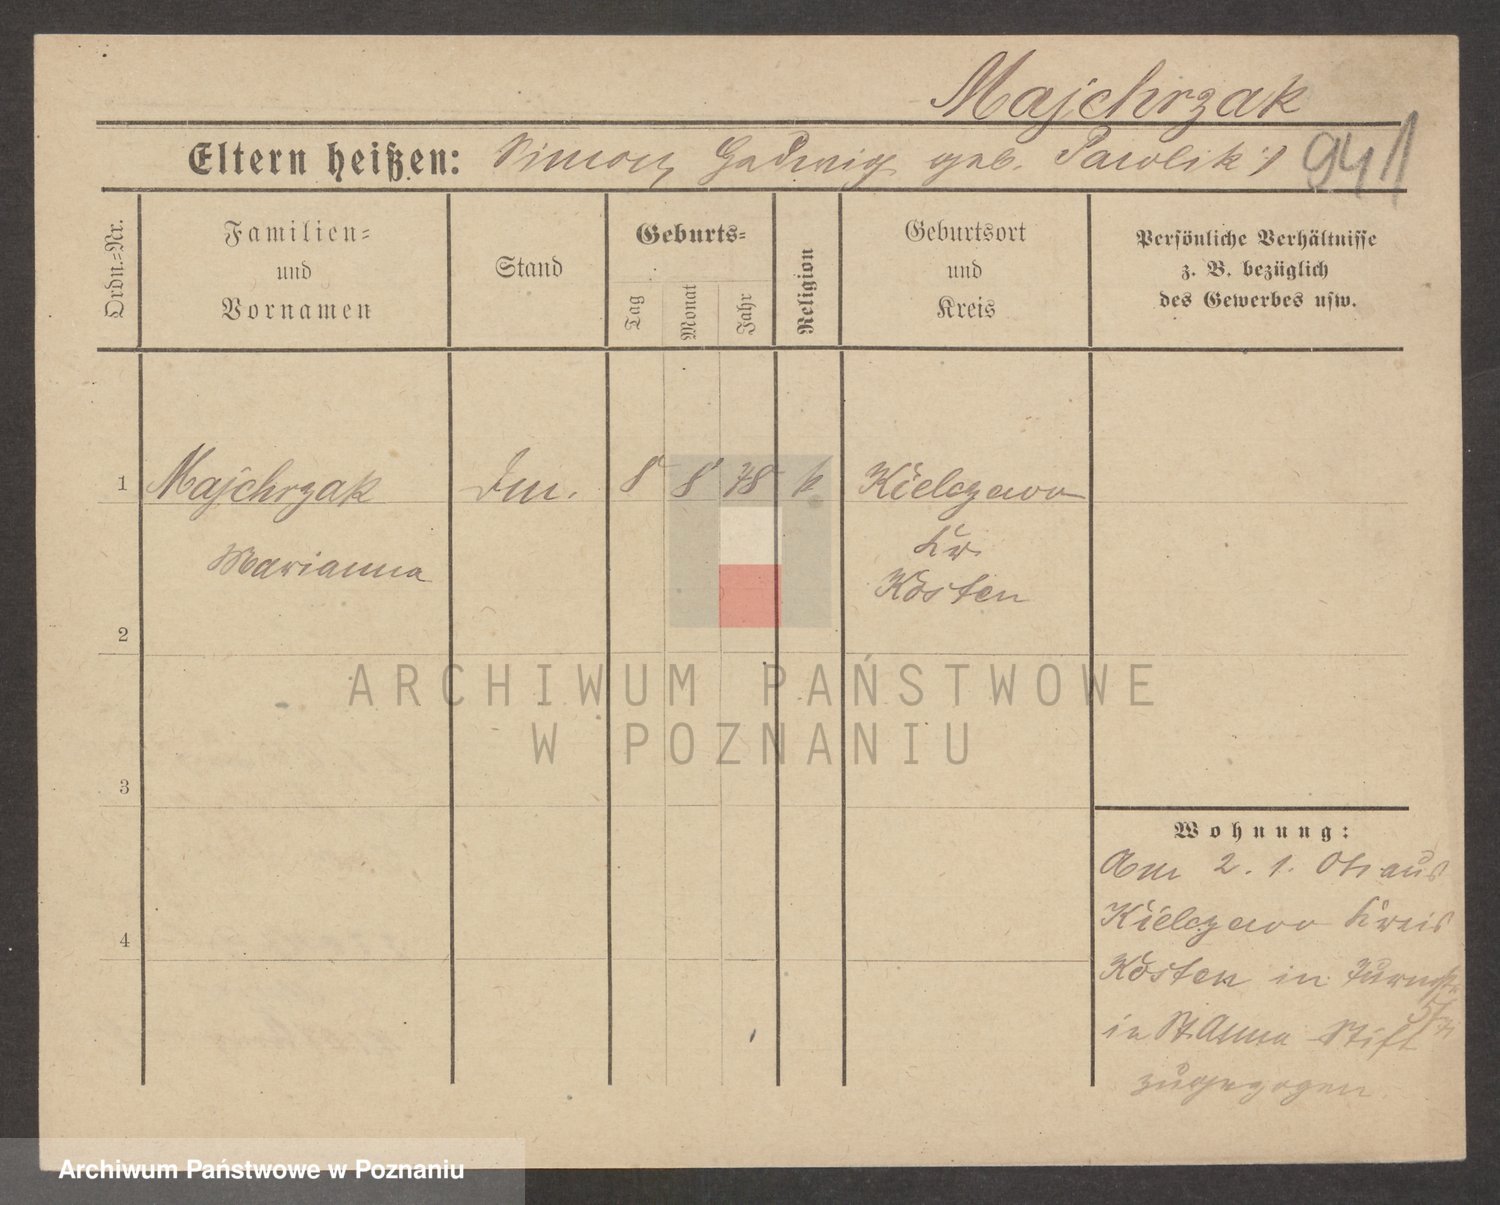 Majchrzak
Eltern heißen: Simon, Hedwig geb. Pawolik
Ordn.-Nr.
Familien-
und
Vornamen
Stand
Geburts-
Tag
Monat
Jahr
Religion
Geburtsort
und
Kreis
Persönliche Verhältnisse
z. B. bezüglich
des Gewerbes usw.
1 Majchrzak 8 8 78 k Kielczewo
Marianna Kr
Kosten
2
3
4
Wohnung:
Am 2. 1. aus
Kielczewo Kreis
Kosten in
in St Anna Stift
zugezogen.
ARCHIWUM PAŃSTWOWE
W POZNANIU
Archiwum Państwowe w Poznaniu